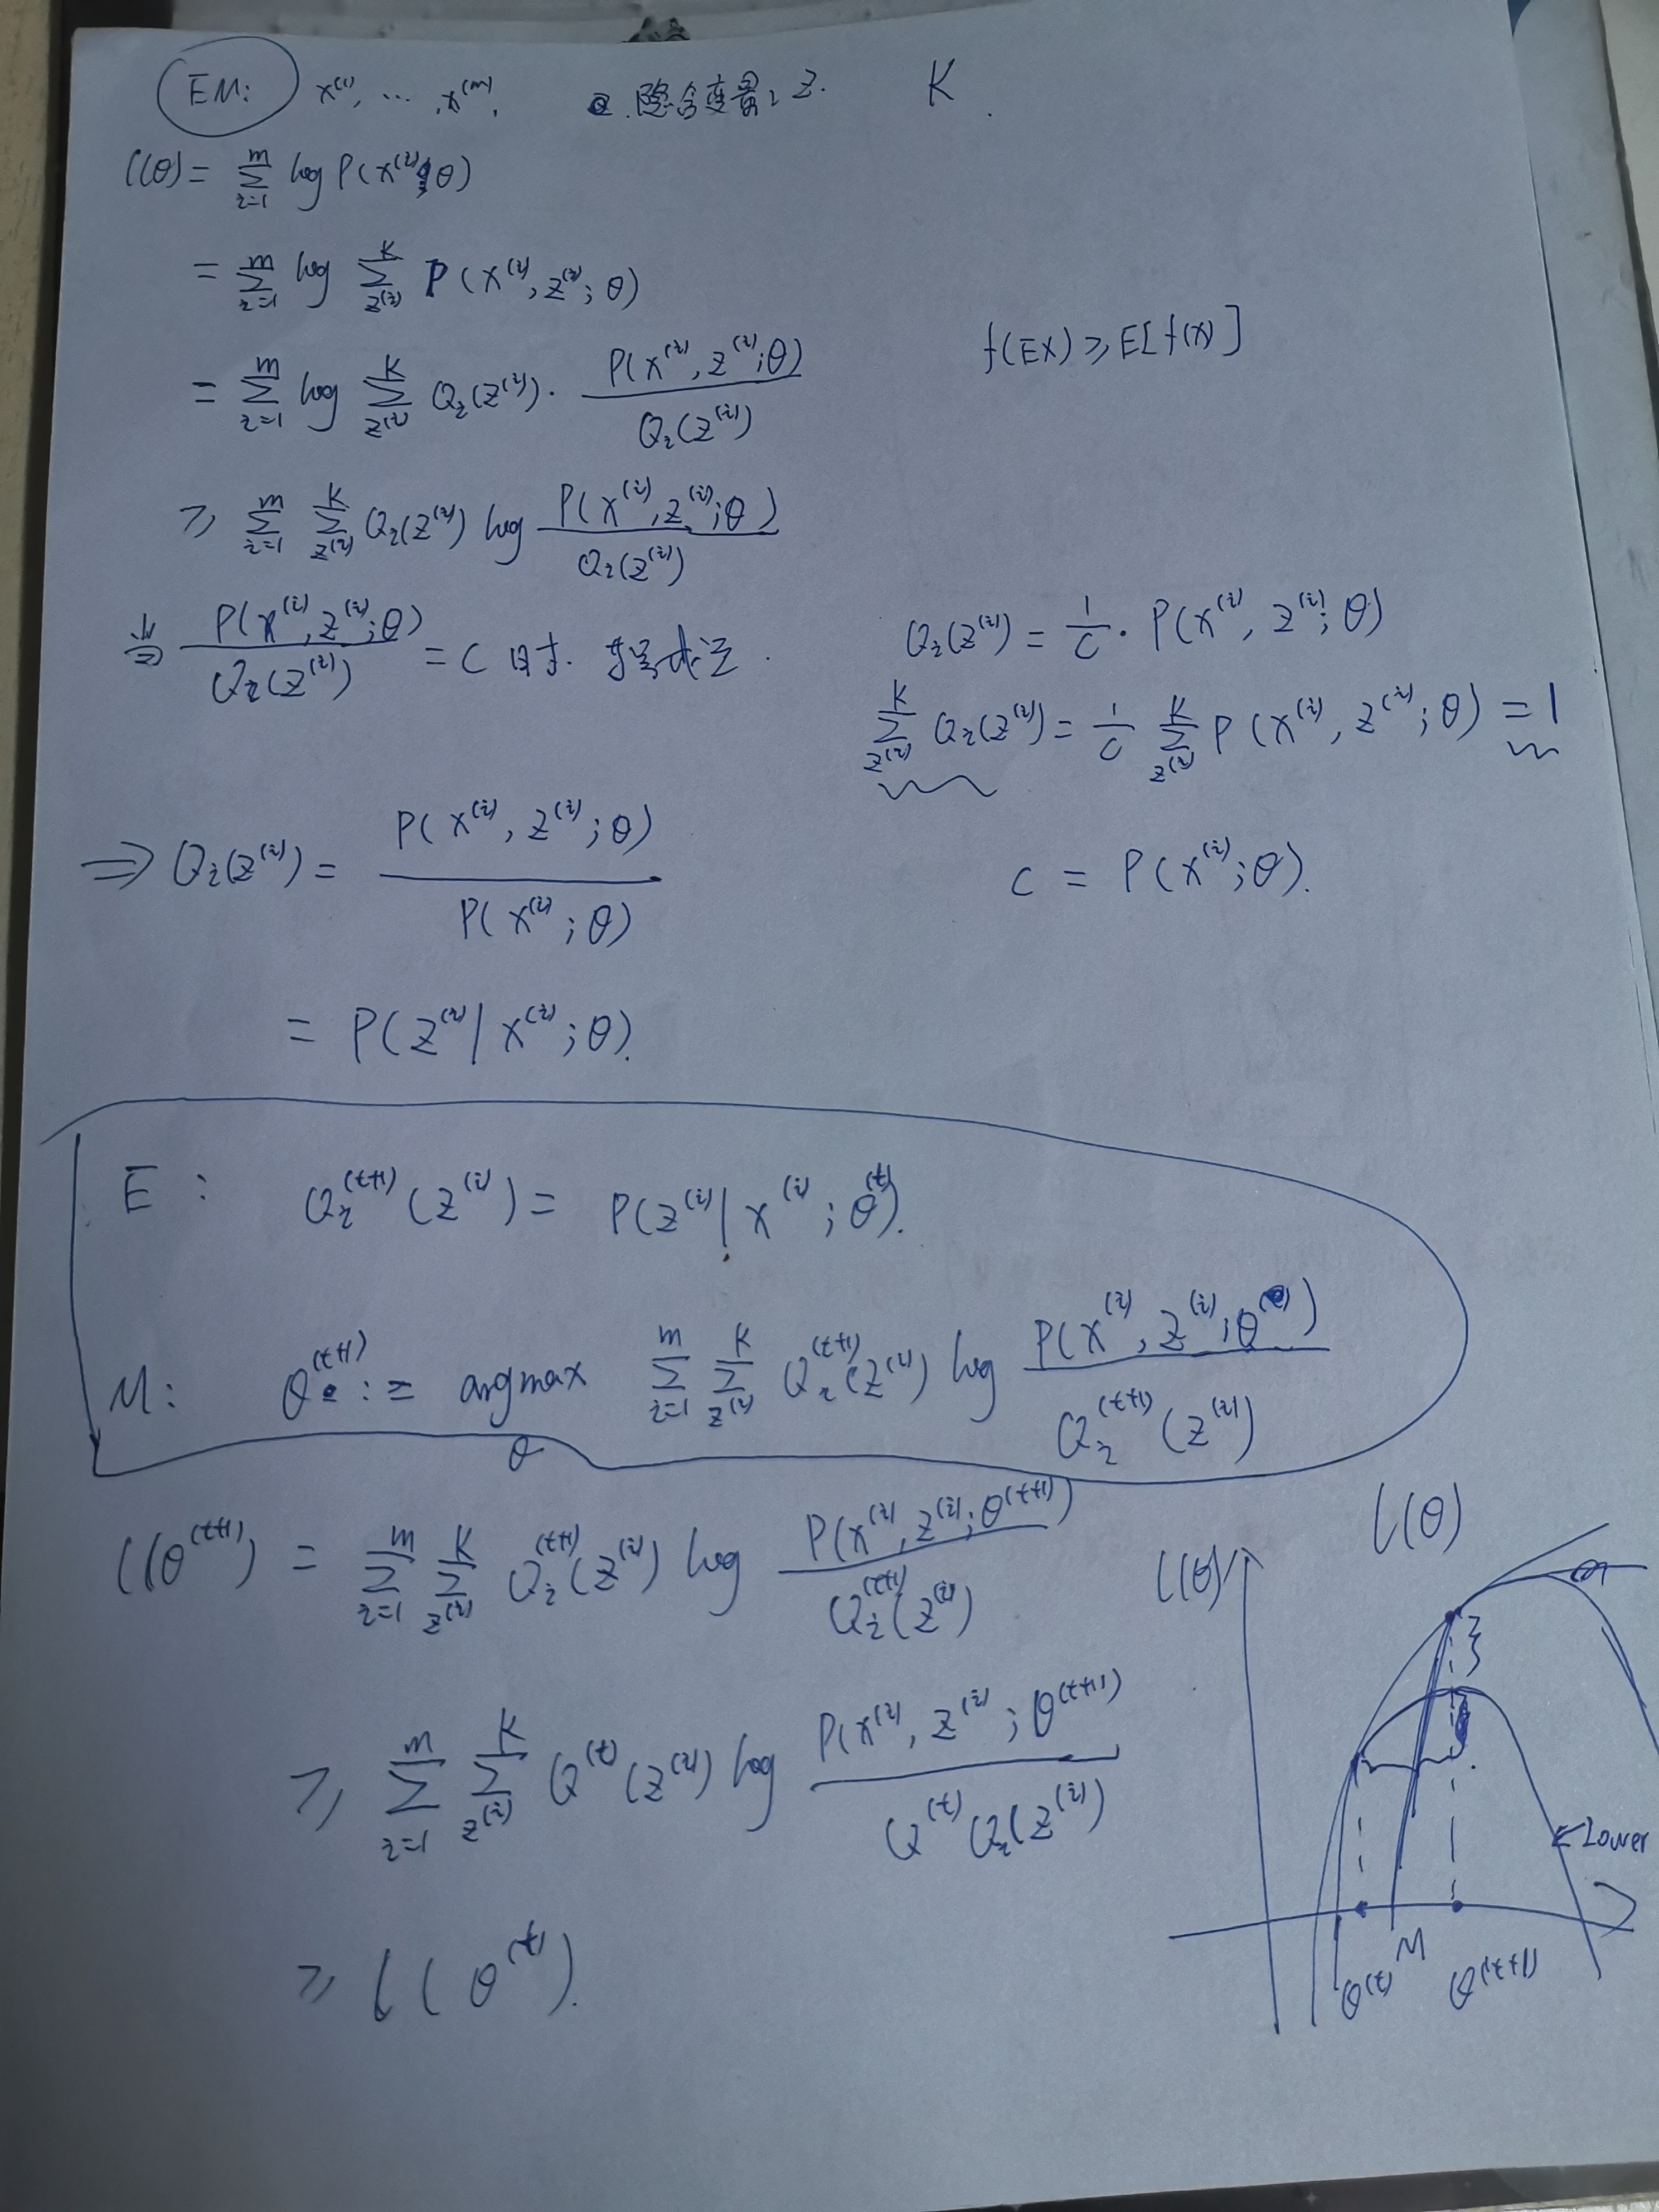 EM: x^(1), ... , x^(m), 隐含变量, z. K.
l(θ) = Σ_{i=1}^{m} log P(x^(i); θ)
= Σ_{i=1}^{m} log Σ_{z^(i)}^{K} P(x^(i), z^(i); θ)
= Σ_{i=1}^{m} log Σ_{z^(i)}^{K} Q_i(z^(i)) · P(x^(i), z^(i); θ) / Q_i(z^(i))
f(EX) ≥ E[f(X)]
≥ Σ_{i=1}^{m} Σ_{z^(i)}^{K} Q_i(z^(i)) log P(x^(i), z^(i); θ) / Q_i(z^(i))
当 P(x^(i), z^(i); θ) / Q_i(z^(i)) = C 时. 等号成立.
Q_i(z^(i)) = 1/C · P(x^(i), z^(i); θ)
Σ_{z^(i)}^{K} Q_i(z^(i)) = 1/C Σ_{z^(i)}^{K} P(x^(i), z^(i); θ) = 1
C = P(x^(i); θ).
⇒ Q_i(z^(i)) = P(x^(i), z^(i); θ) / P(x^(i); θ)
= P(z^(i) | x^(i); θ).
E: Q_i^(t+1)(z^(i)) = P(z^(i) | x^(i); θ^(t)).
M: θ^(t+1) := argmax_θ Σ_{i=1}^{m} Σ_{z^(i)}^{K} Q_i^(t+1)(z^(i)) log P(x^(i), z^(i); θ) / Q_i^(t+1)(z^(i))
l(θ^(t+1)) = Σ_{i=1}^{m} Σ_{z^(i)}^{K} Q_i^(t+1)(z^(i)) log P(x^(i), z^(i); θ^(t+1)) / Q_i^(t+1)(z^(i))
≥ Σ_{i=1}^{m} Σ_{z^(i)}^{K} Q^(t)(z^(i)) log P(x^(i), z^(i); θ^(t+1)) / Q^(t) Q_i(z^(i))
≥ l(θ^(t)).
l(θ)
l(θ)
← Lower
θ^(t) M θ^(t+1)